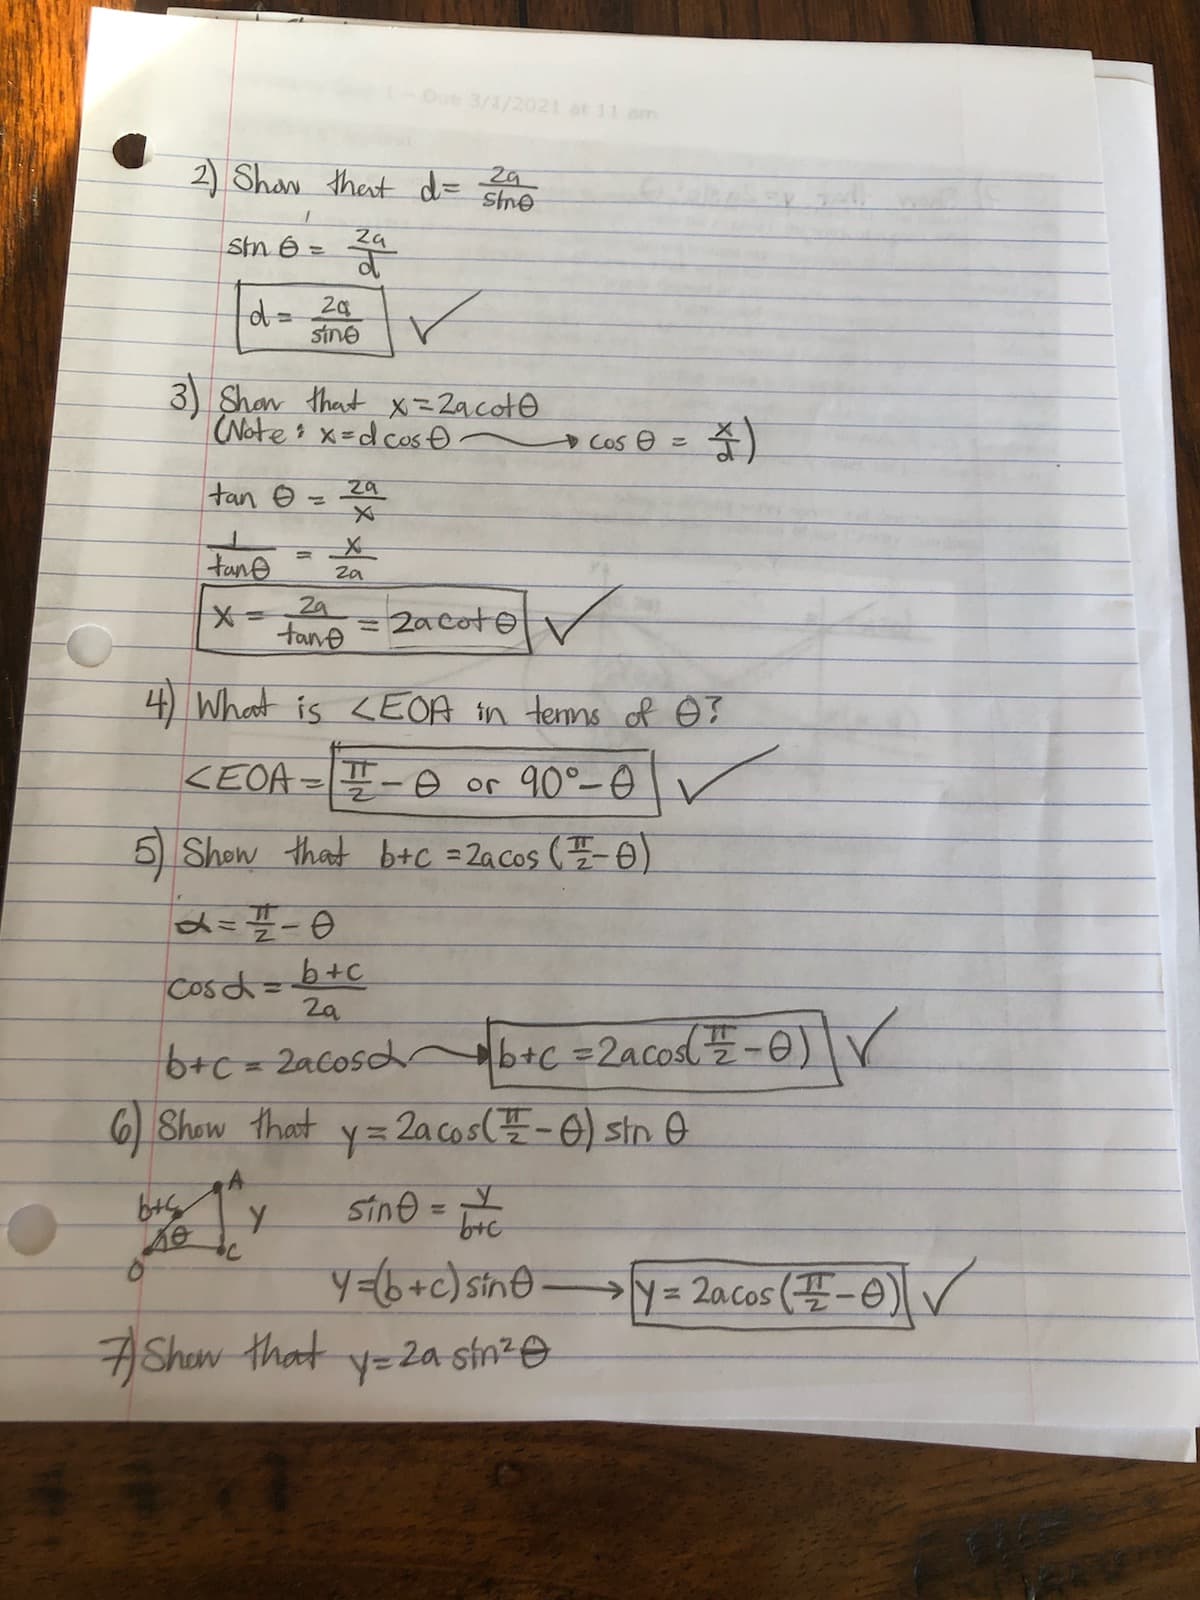 Due 3/1/2021 at 11 am
2) Show that d = 2a/sinθ
sin θ = 2a/d
d = 2a/sinθ ✓
3) Show that x = 2a cot θ
(Note: x = d cos θ → cos θ = x/d)
tan θ = 2a/x
1/tanθ = x/2a
x = 2a/tanθ = 2a cot θ ✓
4) What is <EOA in terms of θ?
<EOA = π/2 - θ or 90° - θ ✓
5) Show that b+c = 2a cos (π/2 - θ)
α = π/2 - θ
cos α = b+c/2a
b+c = 2a cos α → b+c = 2a cos(π/2 - θ) ✓
6) Show that y = 2a cos(π/2 - θ) sin θ
A
b+c
y
θ
C
O
sin θ = y/b+c
y = (b+c) sin θ → y = 2a cos (π/2 - θ) ✓
7) Show that y = 2a sin²θ